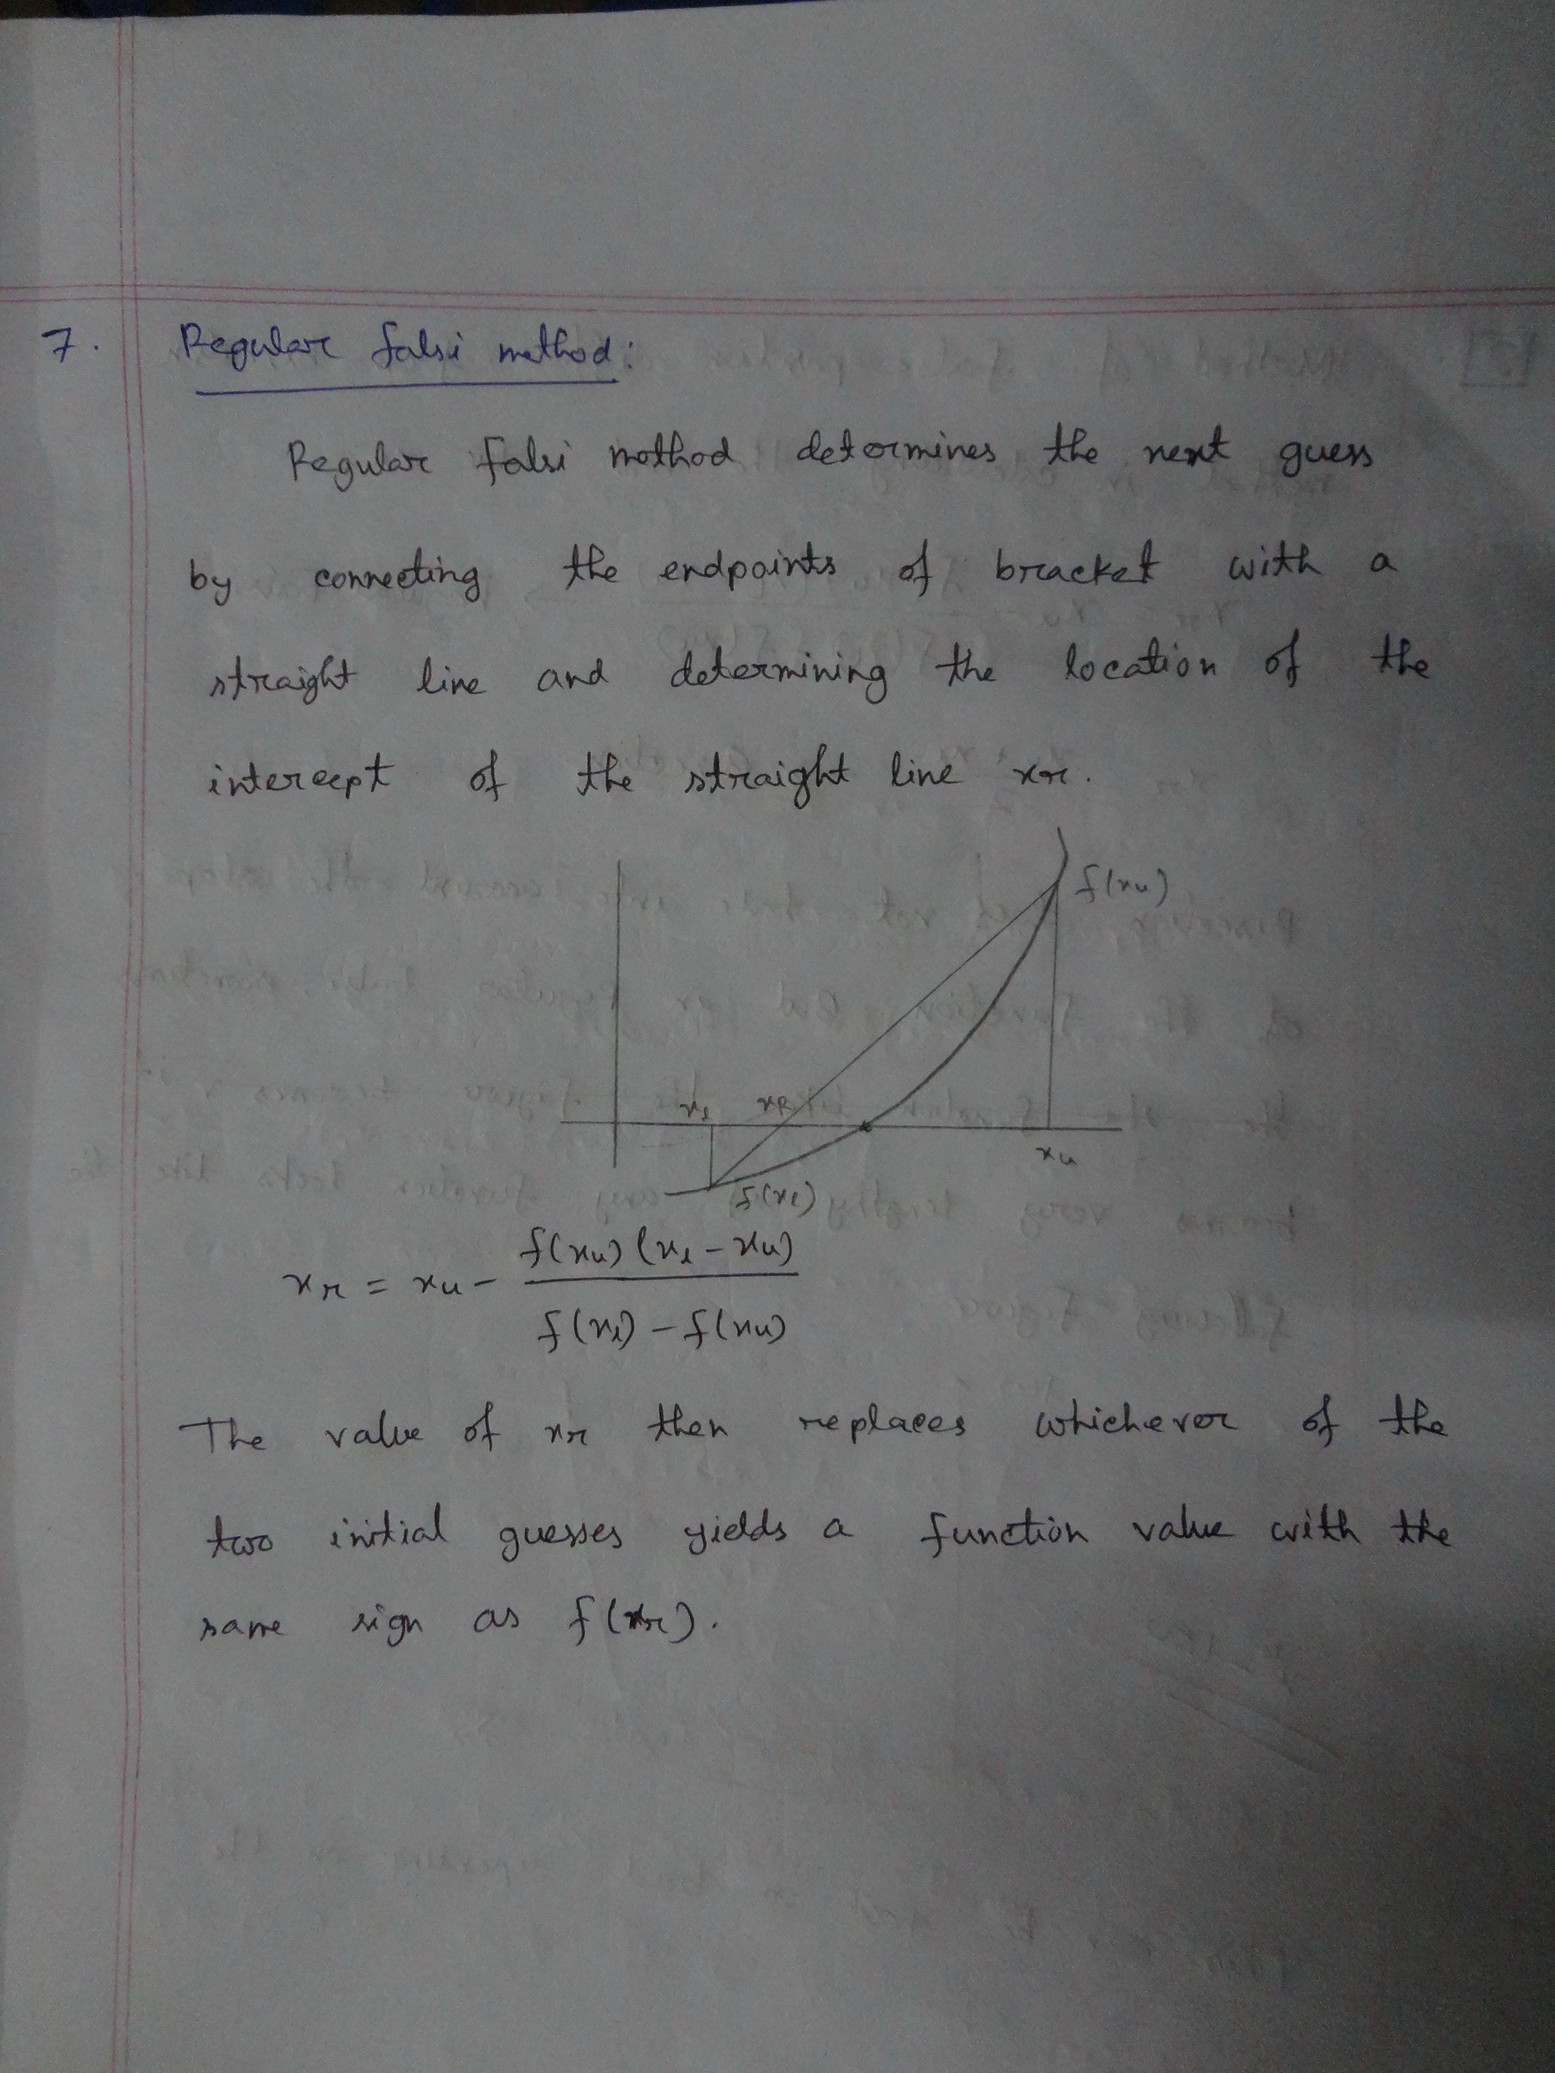 7. Regular falsi method:
Regular falsi method determines the next guess
by connecting the endpoints of bracket with a
straight line and determining the location of the
intercept of the straight line xr.
f(xu)
xl xR
xu
f(xl)
xr = xu - f(xu) (xl - xu) / f(xl) - f(xu)
The value of xr then replaces whichever of the
two initial guesses yields a function value with the
same sign as f(xr).